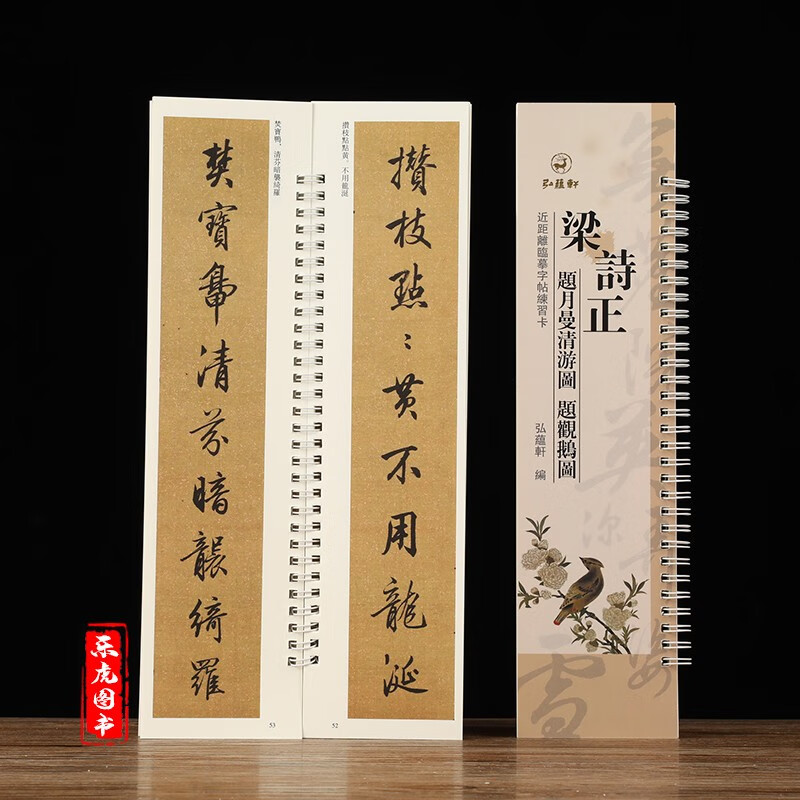 弘蘊軒
梁詩正
題月曼清游圖 題觀鵝圖
近距離臨摹字帖練習卡
弘蘊軒 編
攢枝點點黃。不用龍涎
攢枝點〻黃不用龍涎
52
焚寶鴨，清芬暗襲綺羅
焚寶鴨清芬暗襲綺羅
53
乐虎图书